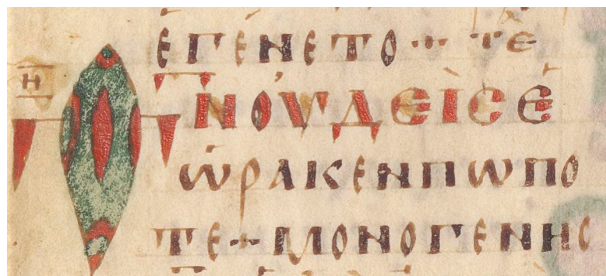 ΕΓΕΝΕΤΟ ··· ΤΕ
Η
ΘΝ ΟΥΔΕΙϹ Ε
ΩΡΑΚΕΝ ΠΩΠΟ
ΤΕ + ΜΟΝΟΓΕΝΗϹ